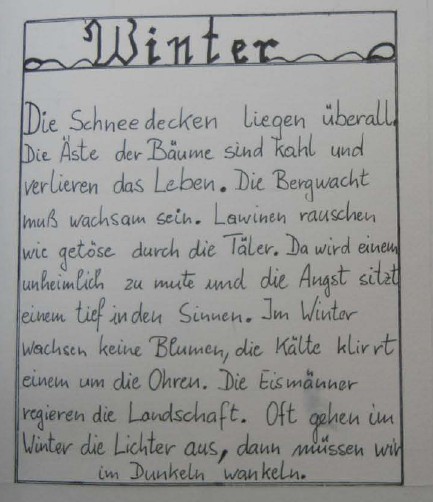 Winter
Die Schneedecken liegen überall.
Die Äste der Bäume sind kahl und
verlieren das Leben. Die Bergwacht
muß wachsam sein. Lawinen rauschen
wie getöse durch die Täler. Da wird einem
unheimlich zu mute und die Angst sitzt
einem tief in den Sinnen. Im Winter
wachsen keine Blumen, die Kälte klirrt
einem um die Ohren. Die Eismänner
regieren die Landschaft. Oft gehen im
Winter die Lichter aus, dann müssen wir
im Dunkeln wankeln.